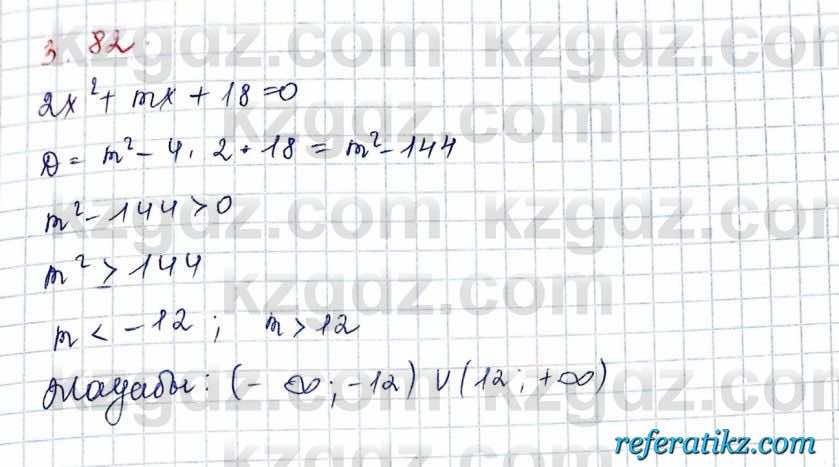 3.82.
2x² + mx + 18 = 0
D = m² - 4 · 2 · 18 = m² - 144
m² - 144 > 0
m² > 144
m < -12 ; m > 12
Жауабы: (-∞; -12) ∪ (12; +∞)
kzgdz.com kzgdz.com
kzgdz.com
kzgdz.com kzgdz.com
kzgdz.com
kzgdz.com kzgdz.com
referatikz.com